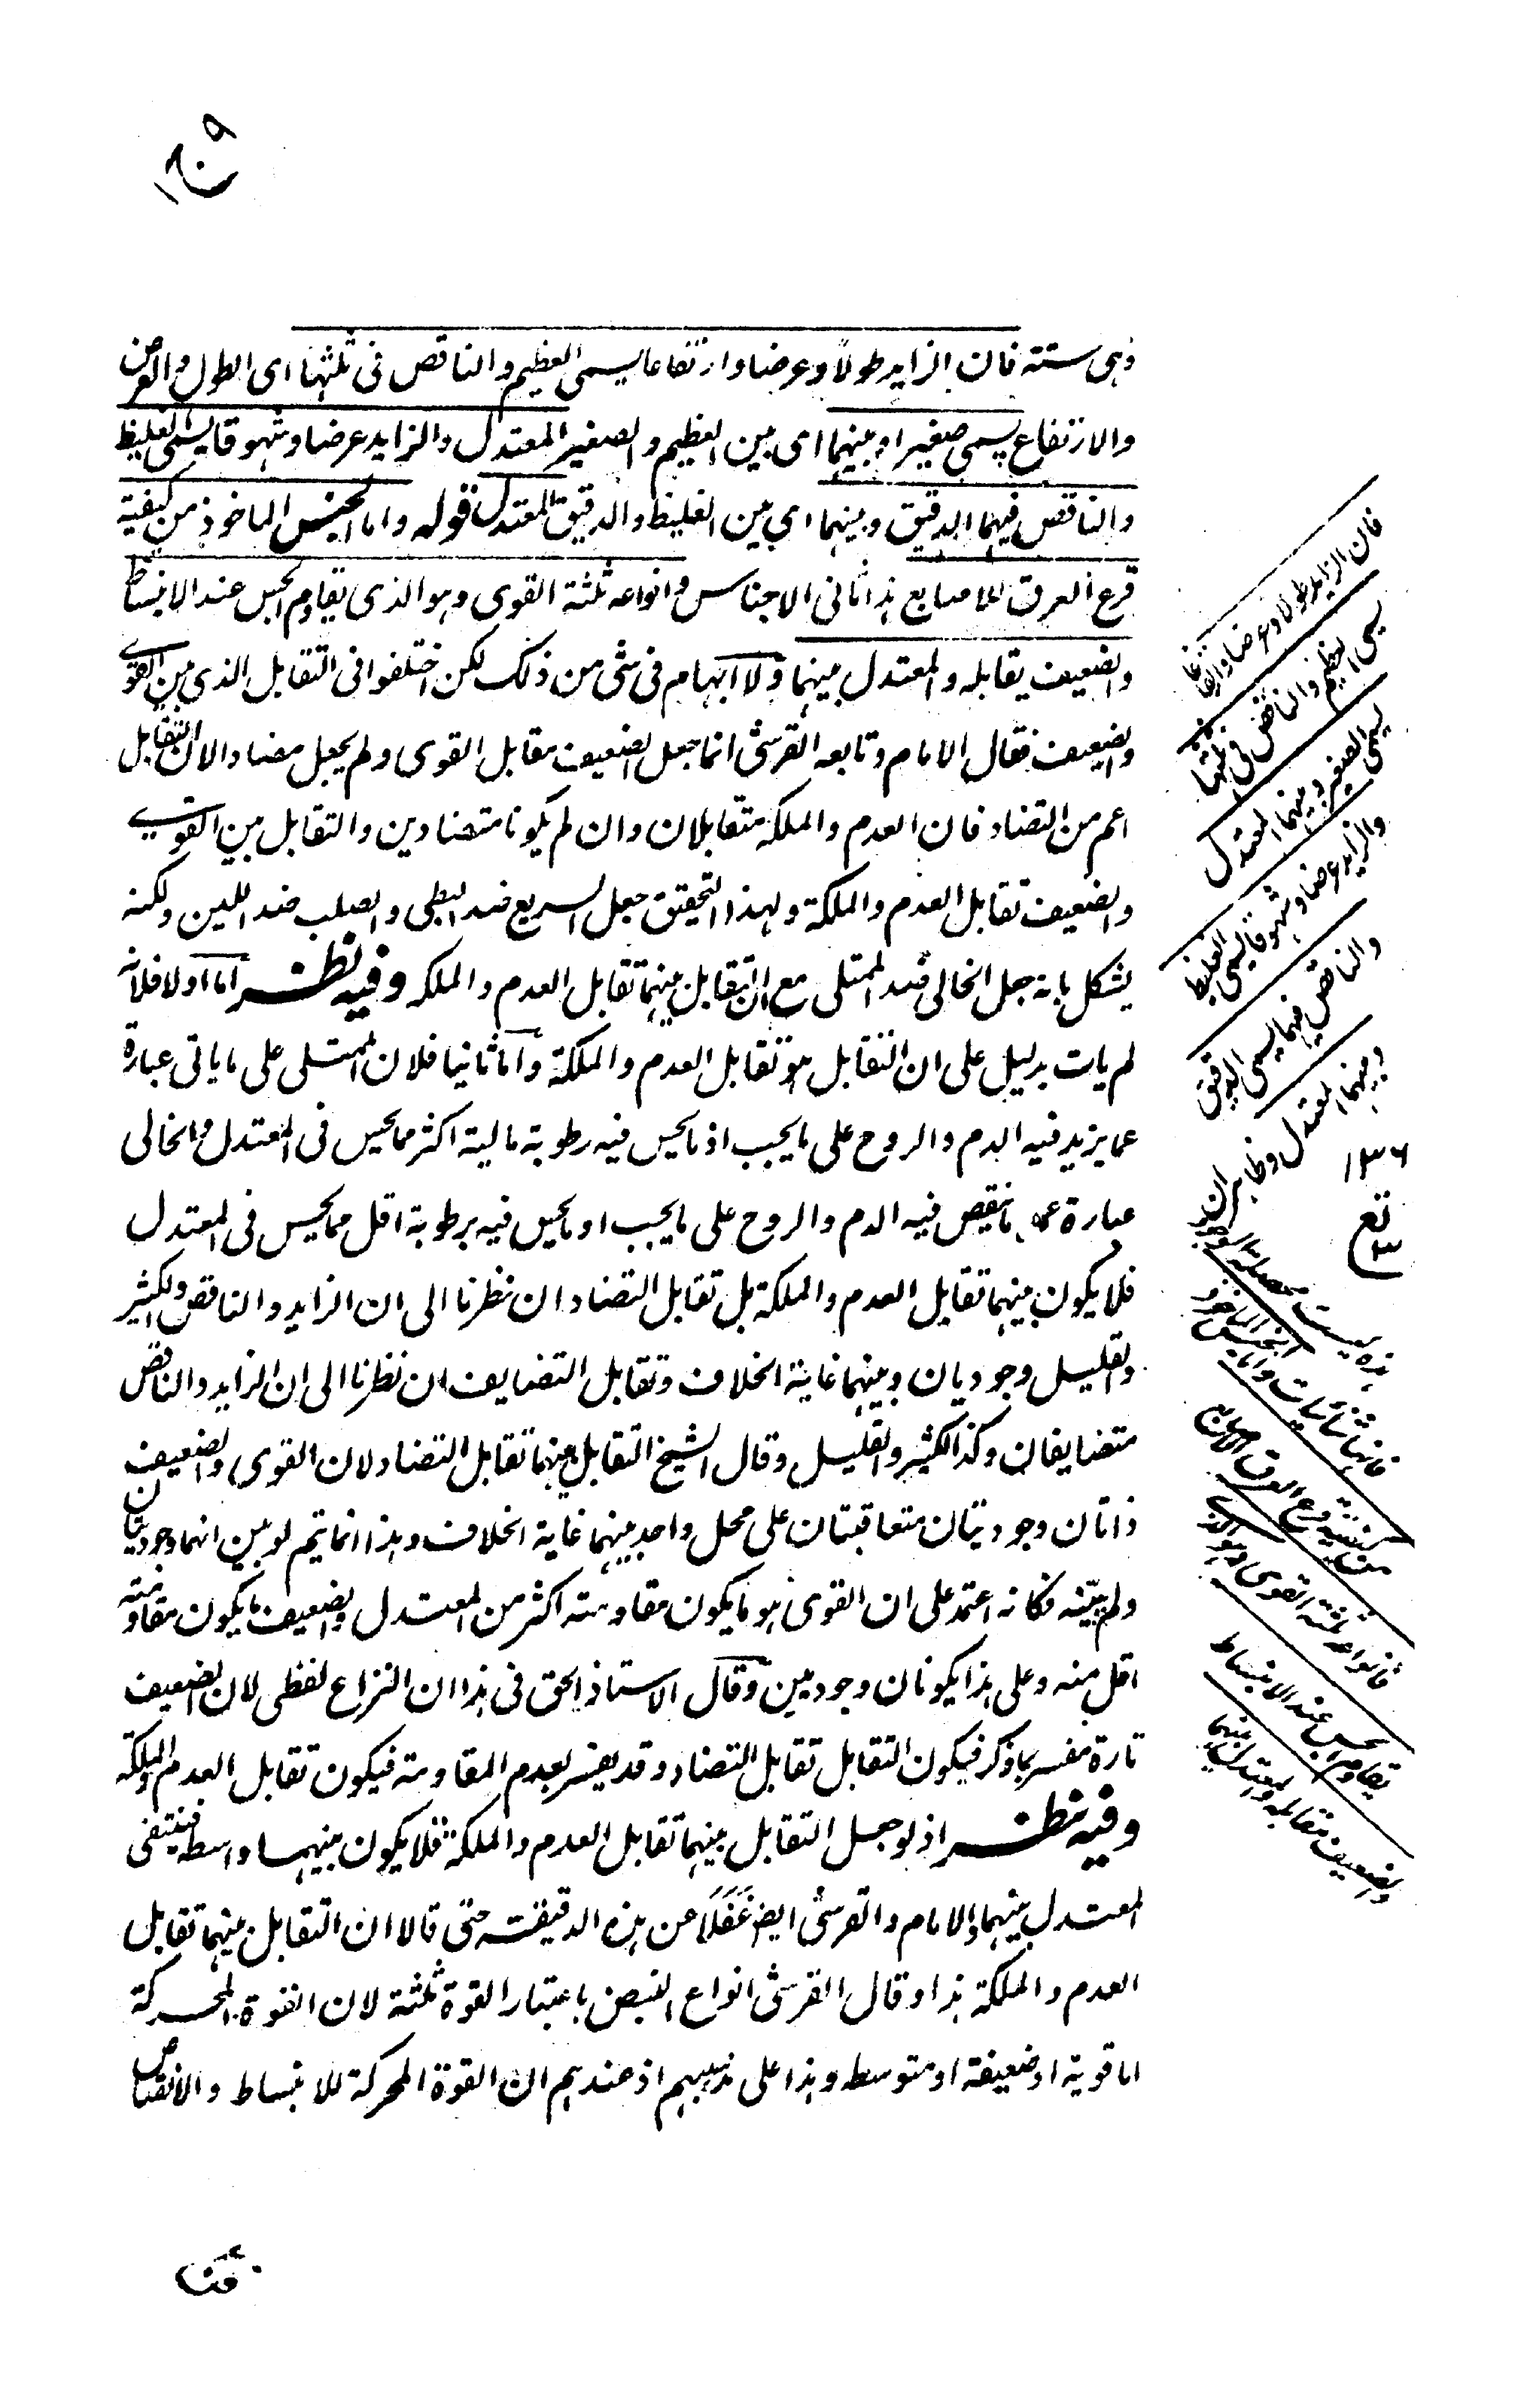 ١٠٩
وهى ستة فان الزايد طولا وعرضا وارتفاعا يسمى العظيم والناقص فى ثلثتها اى الطول والعرض
والارتفاع يسمى صغيرا وبينهما اى بين العظيم والصغير المعتدل والزايد عرضا وشهوقا يسمى الغليظ
والناقص فيهما الدقيق وبينهما اى بين الغليظ والدقيق المعتدل قوله واما الجنس الماخوذ من كيفية
قرع العرق للاصابع هذا ثانى الاجناس وانواعه ثلثة القوى وهو الذى يقاوم الجس عند الانبساط
والضعيف يقابله والمعتدل بينهما ولا ابهام فى شى من ذلك لكن اختلفوا فى التقابل الذى بين القوى
والضعيف فقال الامام وتابعه القرشى انما جعل الضعيف مقابل القوى ولم يجعل مضادا لان التقابل
اعم من التضاد فان العدم والملكة متقابلان وان لم يكونا متضادين والتقابل بين القوى
والضعيف تقابل العدم والملكة ولهذا التحقيق جعل السريع ضد البطى والصلب ضد اللين ولكنه
يشكل بانه جعل الخالى ضد الممتلى مع ان التقابل بينهما تقابل العدم والملكه وفيه نظر اما اولا فلانه
لم يات بدليل على ان التقابل هو تقابل العدم والملكة واما ثانيا فلان الممتلى على ما ياتى عبارة
عما يزيد فيه الدم والروح على ما يجب او ما يحس فيه رطوبة مالية اكثر مما يحس فى المعتدل والخالى
عبارة عما ينقص فيه الدم والروح على ما يجب او ما يحس فيه برطوبة اقل مما يحس فى المعتدل
فلا يكون بينهما تقابل العدم والملكة بل تقابل التضاد ان نظرنا الى ان الزايد والناقص والكثير
والقليل وجوديان وبينهما غاية الخلاف وتقابل التضايف ان نظرنا الى ان الزايد والناقص
متضايفان وكذا الكثير والقليل وقال الشيخ التقابل بينهما تقابل التضاد لان القوى والضعيف
ذاتان وجوديتان متعاقبتان على محل واحد بينهما غاية الخلاف وهذا انما يتم لو بين انهما وجوديتان
ولم يبينه فكانه اعتمد على ان القوى هو ما يكون مقاومته اكثر من المعتدل والضعيف ما يكون مقاومته
اقل منه وعلى هذا يكونان وجوديين وقال الاستاذ الحق فى هذا ان النزاع لفظى لان الضعيف
تارة مفسر بما ذكر فيكون التقابل تقابل التضاد وقد يفسر بعدم المقاومته فيكون تقابل العدم والملكة
وفيه نظر اذ لو جعل التقابل بينهما تقابل العدم والملكة فلا يكون بينهما واسطه فينتفى
المعتدل بينهما والامام والقرشى ايضا غفلا عن هذه الدقيقة حتى قالا ان التقابل بينهما تقابل
العدم والملكة هذا وقال القرشى انواع النبض باعتبار القوة ثلثة لان القوة المحركة
اما قوية او ضعيفة او متوسطه وهذا على مذهبهم اذ عندهم ان القوة المحركة للانبساط والانقباض
فان الزايد طولا وعرضا وارتفاعا
يسمى العظيم والناقص فى ثلثتها
يسمى الصغير وبينهما المعتدل
والزايد عرضا وشهوقا يسمى الغليظ
والناقص فيهما يسمى الدقيق
وبينهما المعتدل وظاهر ان
هذه ليست
فانها ثنائيات واما الجنس الماخوذ
من كيفية قرع العرق للاصابع
فانواعه ثلثة القوى وهو الذى
يقاوم الجس عند الانبساط
والضعيف مقابله والمعتدل بينهما
١٣٦